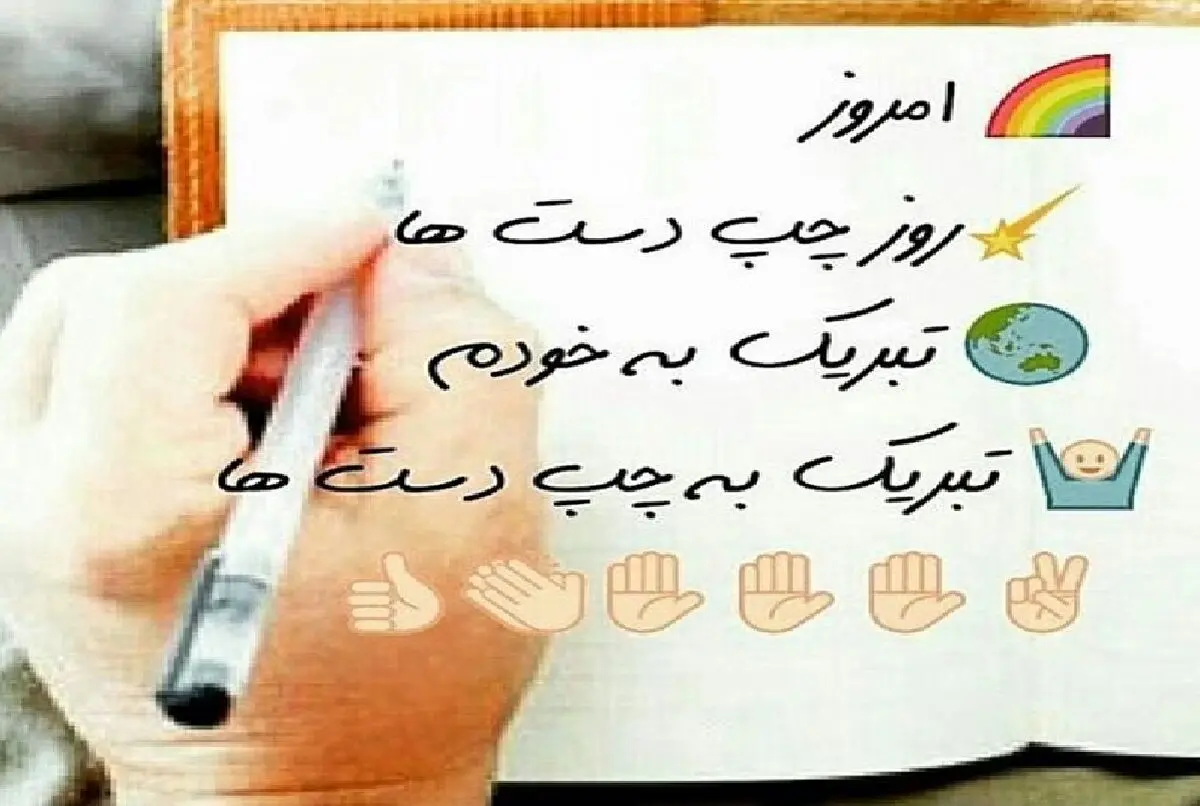 امروز
روز چپ دست ها
تبریک به خودم
تبریک به چپ دست ها